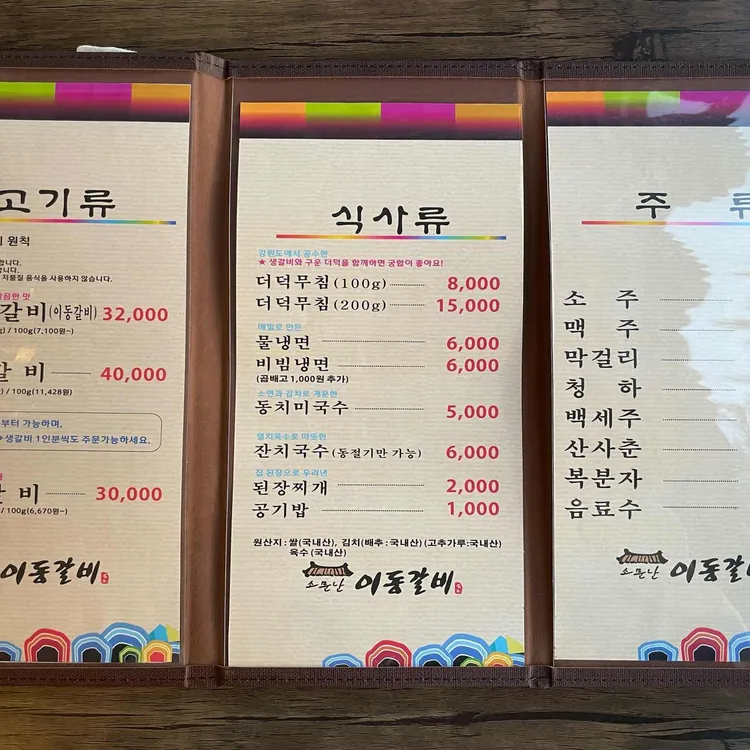 고기류
원칙
저품질 음식을 사용하지 않습니다.
갈비(이동갈비) 32,000
/ 100g(7,100원~)
갈비 40,000
/ 100g(11,428원)
부터 가능하며,
생갈비 1인분씩도 주문가능하세요.
갈비 30,000
/ 100g(6,670원~)
이동갈비
식사류
강원도에서 공수한
★ 생갈비와 구운 더덕을 함께하면 궁합이 좋아요!
더덕무침(100g) 8,000
더덕무침(200g) 15,000
메밀로 만든
물냉면 6,000
비빔냉면 6,000
(곱배고 1,000원 추가)
소면과 김치로 개운한
동치미국수 5,000
멸치육수로 따뜻한
잔치국수(동절기만 가능) 6,000
집 된장으로 우려낸
된장찌개 2,000
공기밥 1,000
원산지 : 쌀(국내산), 김치(배추 : 국내산) (고추가루:국내산)
육수 (국내산)
소문난 이동갈비
주 류
소 주
맥 주
막걸리
청 하
백세주
산사춘
복분자
음료수
소문난 이동갈비